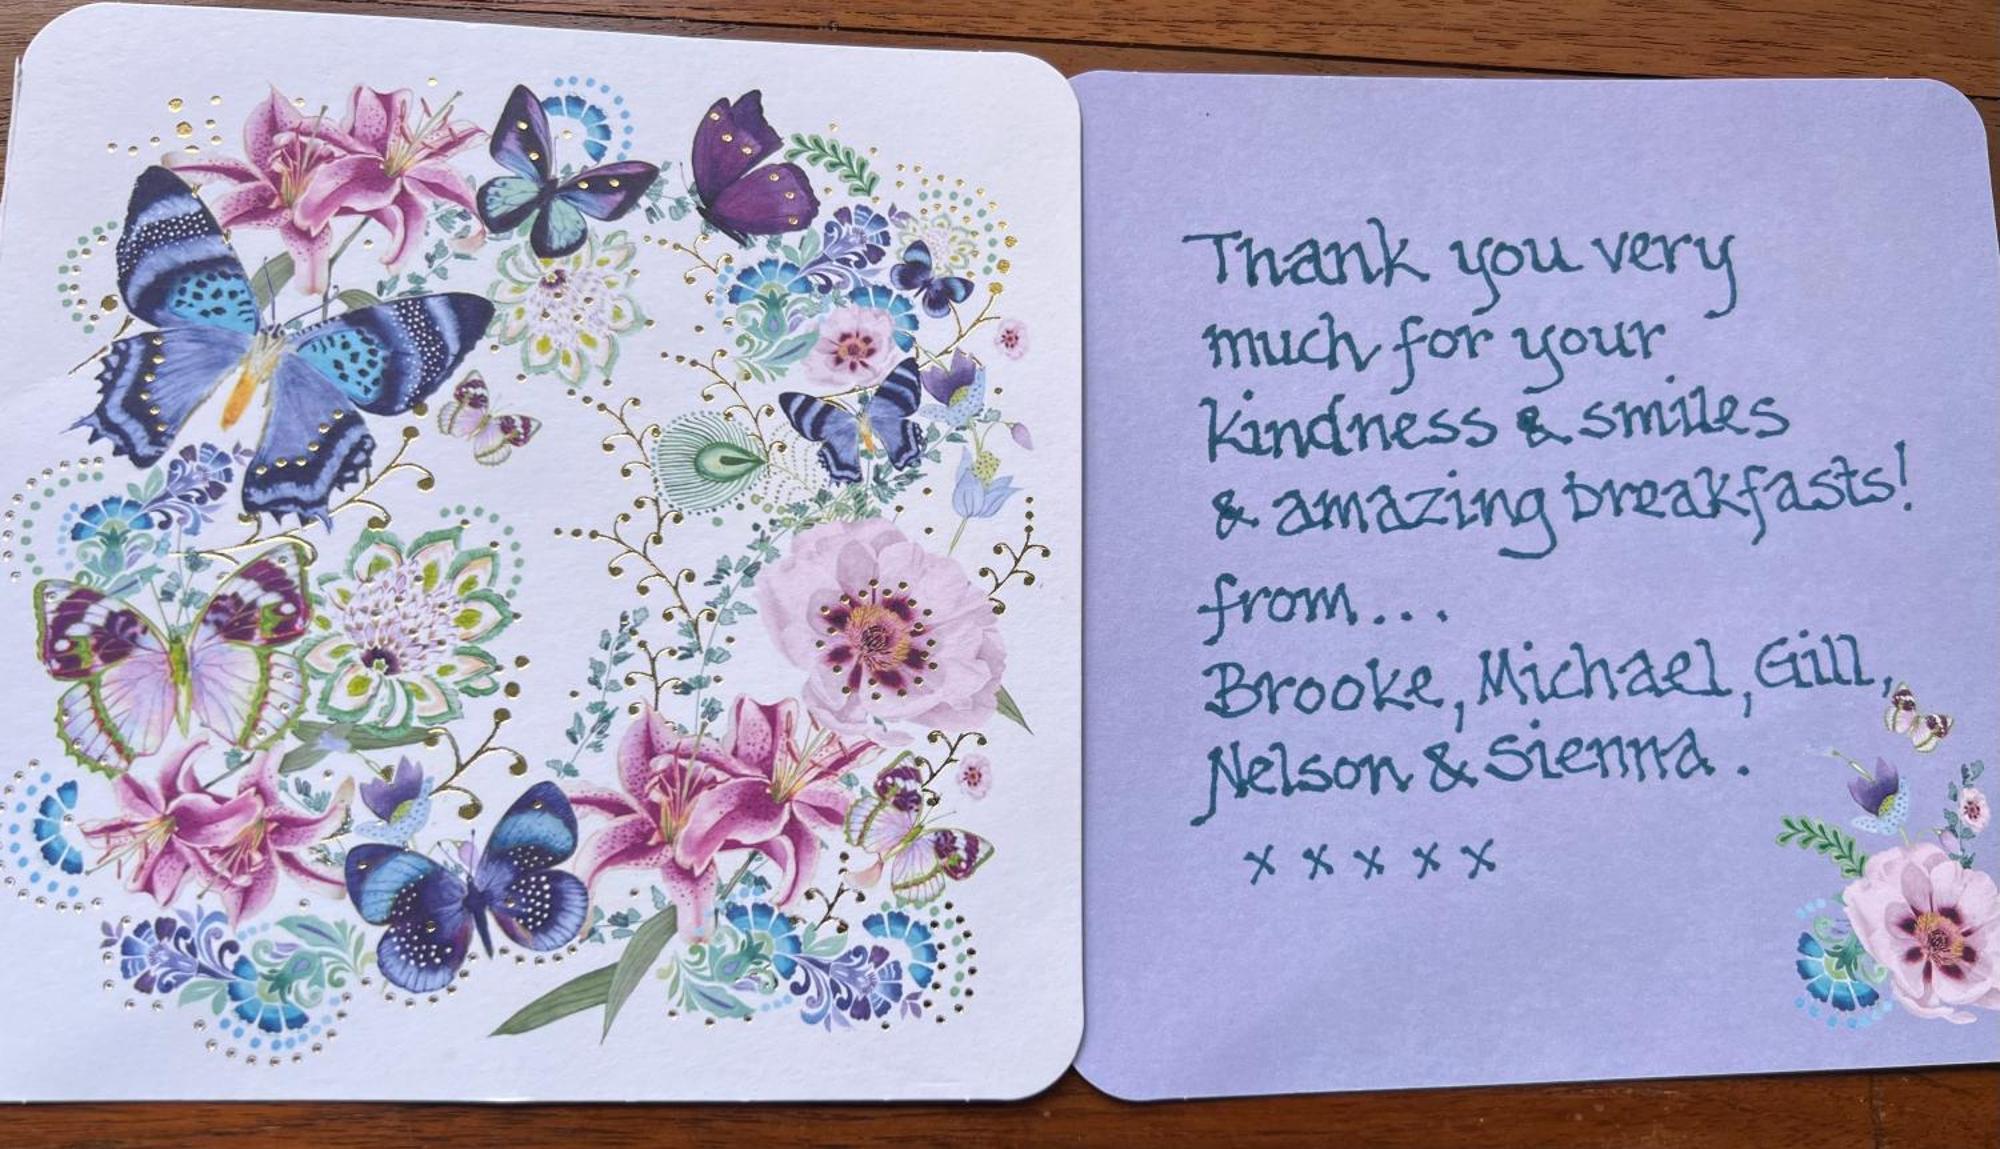 Thank you very
much for your
kindness & smiles
& amazing breakfasts!
from...
Brooke, Michael, Gill,
Nelson & Sienna.
x x x x x